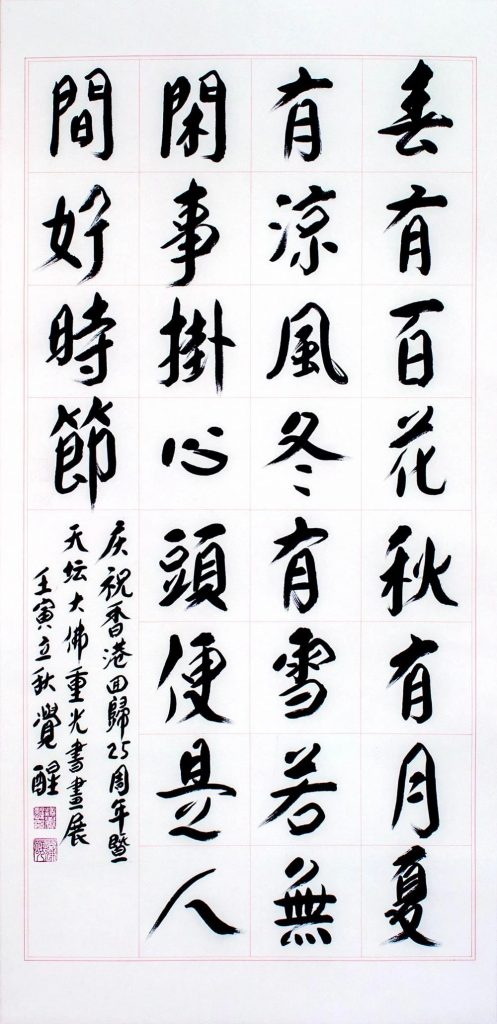 春有百花秋有月夏
有涼風冬有雪若無
閑事掛心頭便是人
間好時節
庆祝香港回歸25周年暨
天坛大佛重光書畫展
壬寅立秋覺醒